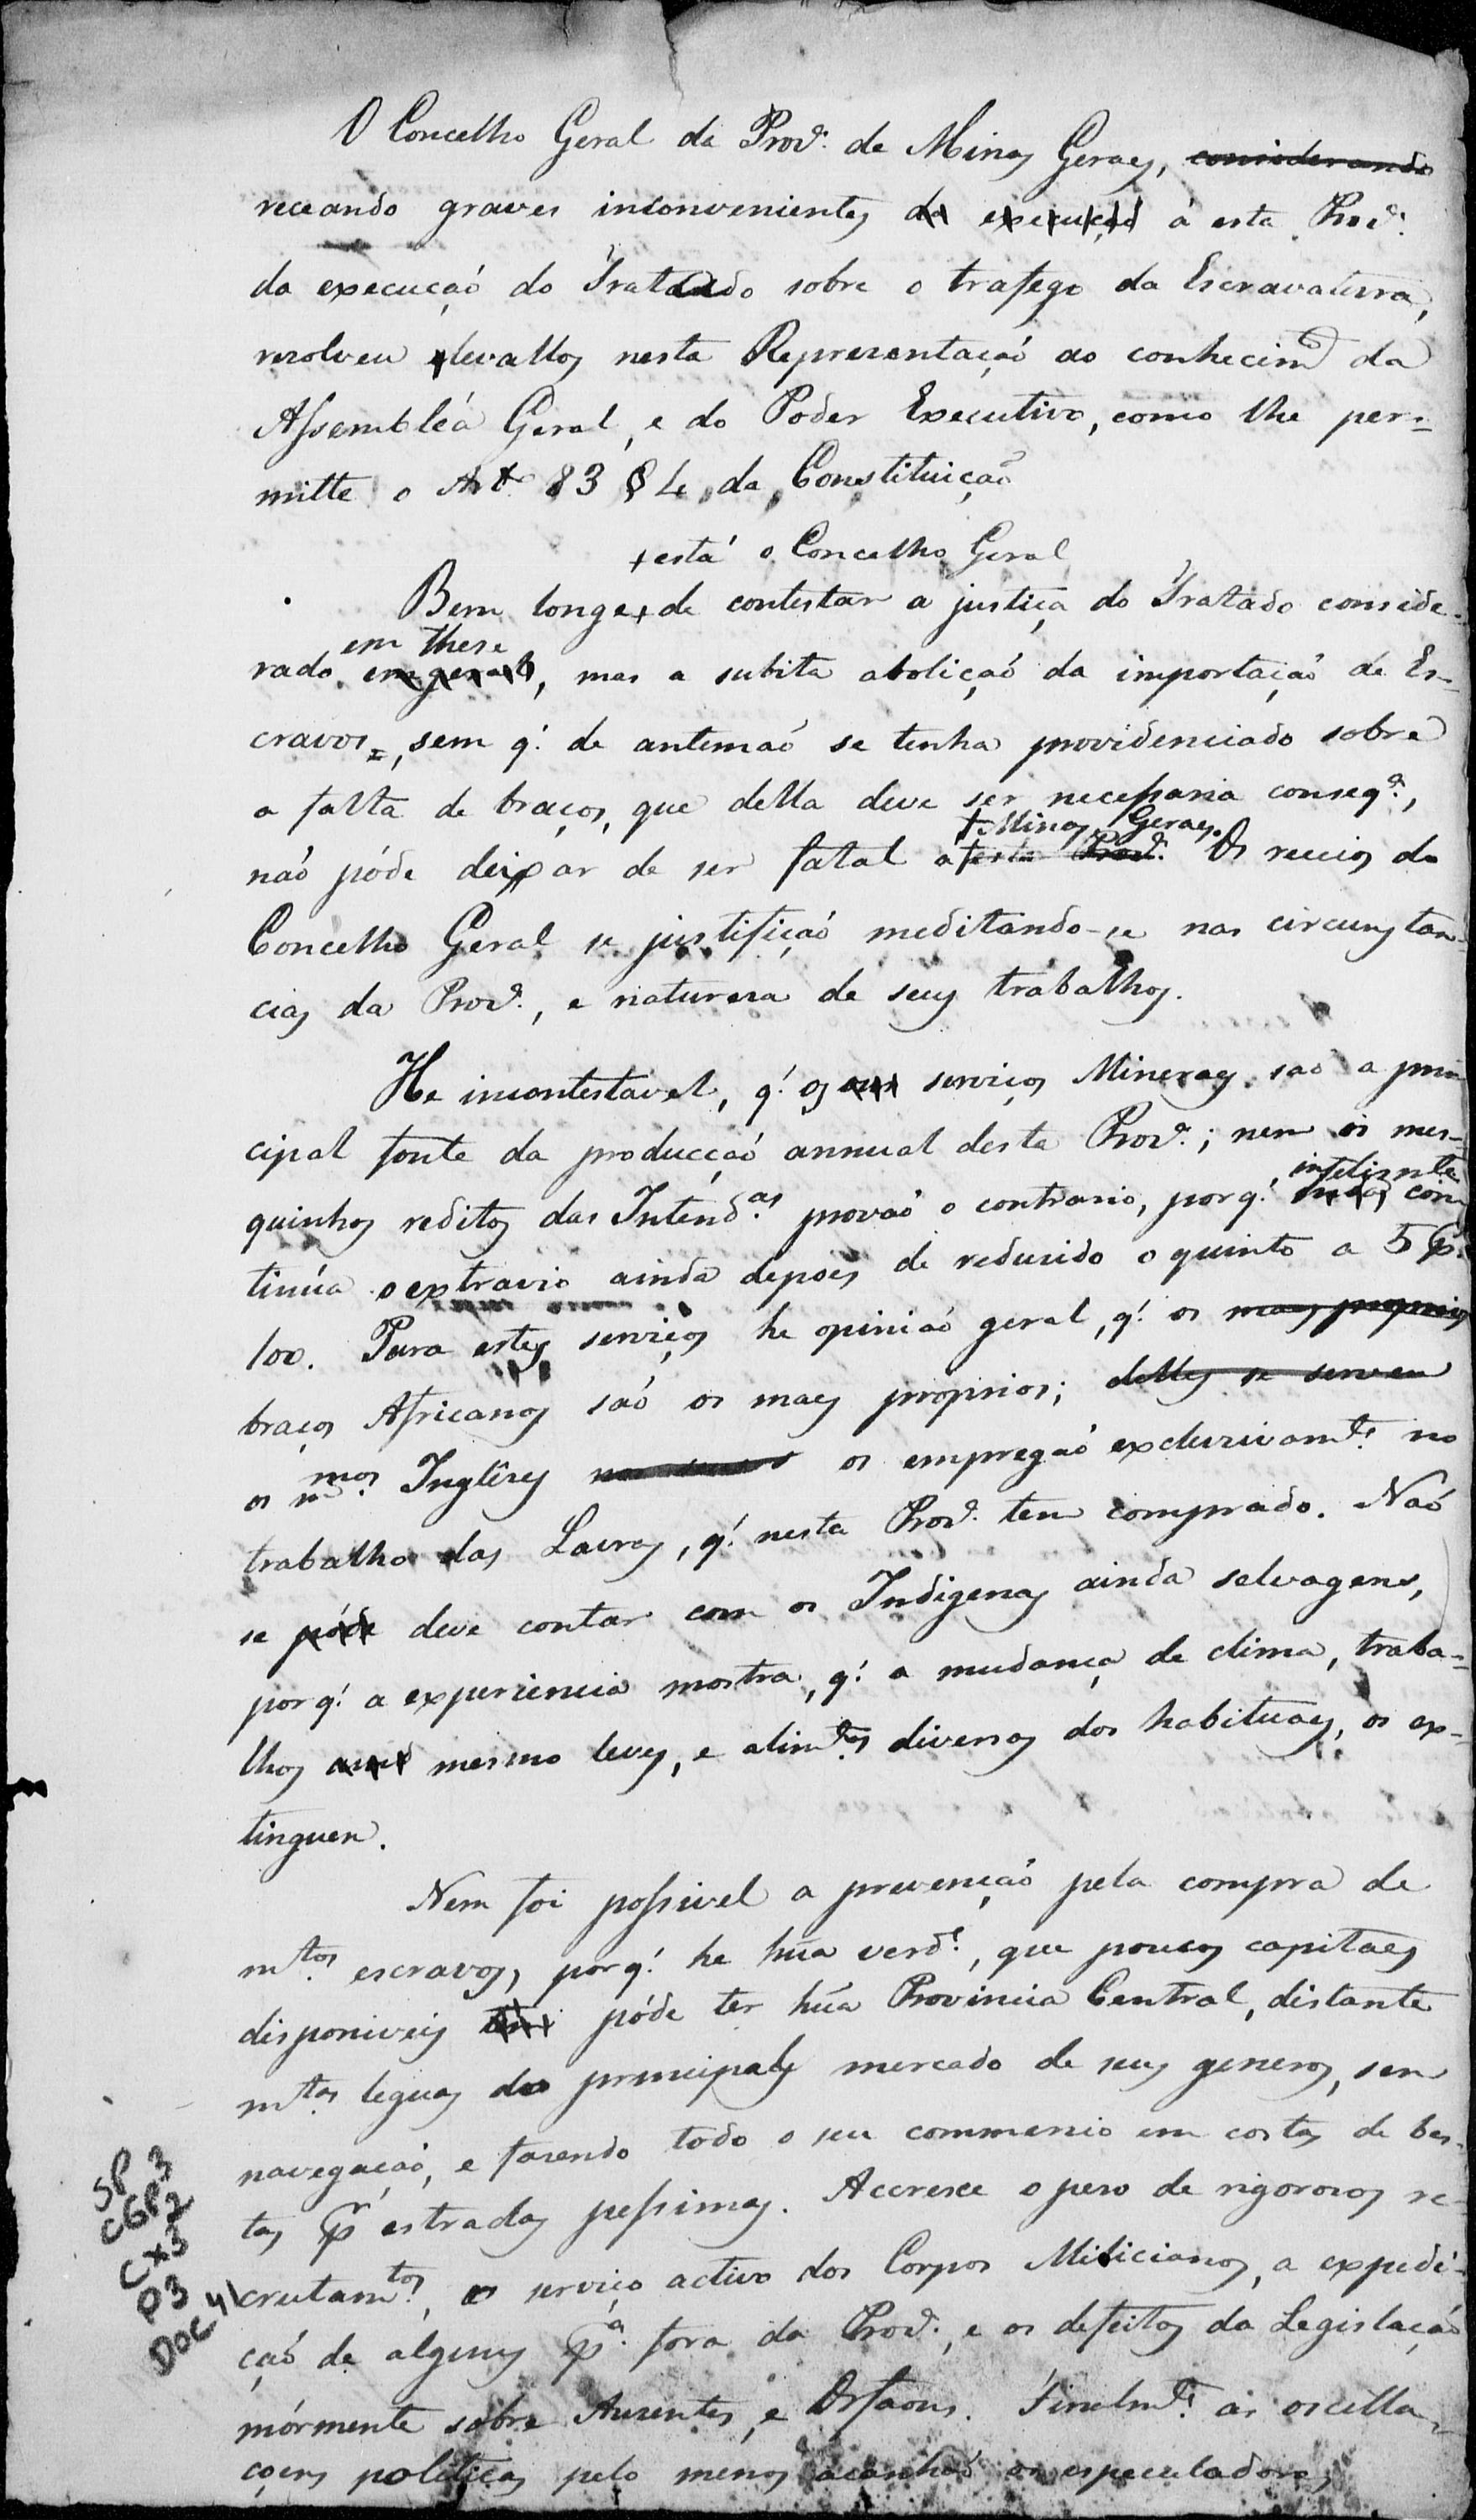 O Concelho Geral da Prov.ª de Minas Geraes, considerando
receando graves inconvenientes da execuçaõ á esta Prov.ª
da execuçaõ do Tratado sobre o trafego da Escravatura,
resolveu elevallos nesta Representaçaõ ao conhecim.to da
Assembléa Geral, e do Poder Executivo, como lhe per=
mitte o Art. 83 § 4 da Constituiçaõ
+ está o Concelho Geral
Bem longe + de contestar a justiça do Tratado conside-
em these
rado em geral, mas a subita aboliçaõ da importaçaõ de Es=
cravos, sem q.' de antemaõ se tenha providenciado sobre
a falta de braços, que della deve ser necessaria conseq.ª,
+ Minas Geraes.
naõ póde deixar de ser fatal a + esta Prov.ª Os receios do
Concelho Geral se justificaõ meditando-se nas circunstan-
cias da Prov.ª, e naturesa de seus trabalhos.
He incontestavel, q.' os serviços Mineraes saõ a prin
cipal fonte da producçaõ annual desta Prov.ª; nem os mes-
infelizm.te
quinhos reditos das Intend.as provaõ o contrario, porq.' con
tinúa o extravio ainda depois de redusido o quinto a 5 p.r
100. Para estes serviços he opiniaõ geral, q.' os mais proprios
braços Africanos saõ os mais proprios; delles se servem
os m.mos Inglêses os empregaõ exclusivam.te no
trabalho das Lavras, q.' nesta Prov.ª tem comprado. Naõ
se póde deve contar com os Indigenas ainda selvagens,
porq.' a experiencia mostra, q.' a mudança de clima, traba=
lhos mesmo leves, e alim.tos diversos dos habituaes, os ex-
tinguem.
Nem foi possivel a prevençaõ pela compra de
m.tos escravos, porq.' he hũa verd.e, que poucos capitaes
disponiveis tem póde ter hũa Provincia Central, distante
m.tas leguas do principal mercado de seus generos, sem
navegaçaõ, e fasendo todo o seu commercio em costas de bes-
tas p.r estradas pessimas. Accresce o peso de rigorosos re-
crutam.tos, o serviço activo dos Corpos Milicianos, a expedi-
çaõ de alguns p.ª fora da Prov.ª, e os defeitos da Legislaçaõ
mórmente sobre Ausentes, e Orfaons. Finalm.te as oscilla=
çoens politicas pelo menos acanhaõ os especuladores,
SP
CGP2 3
CX3
P3
DOC 41